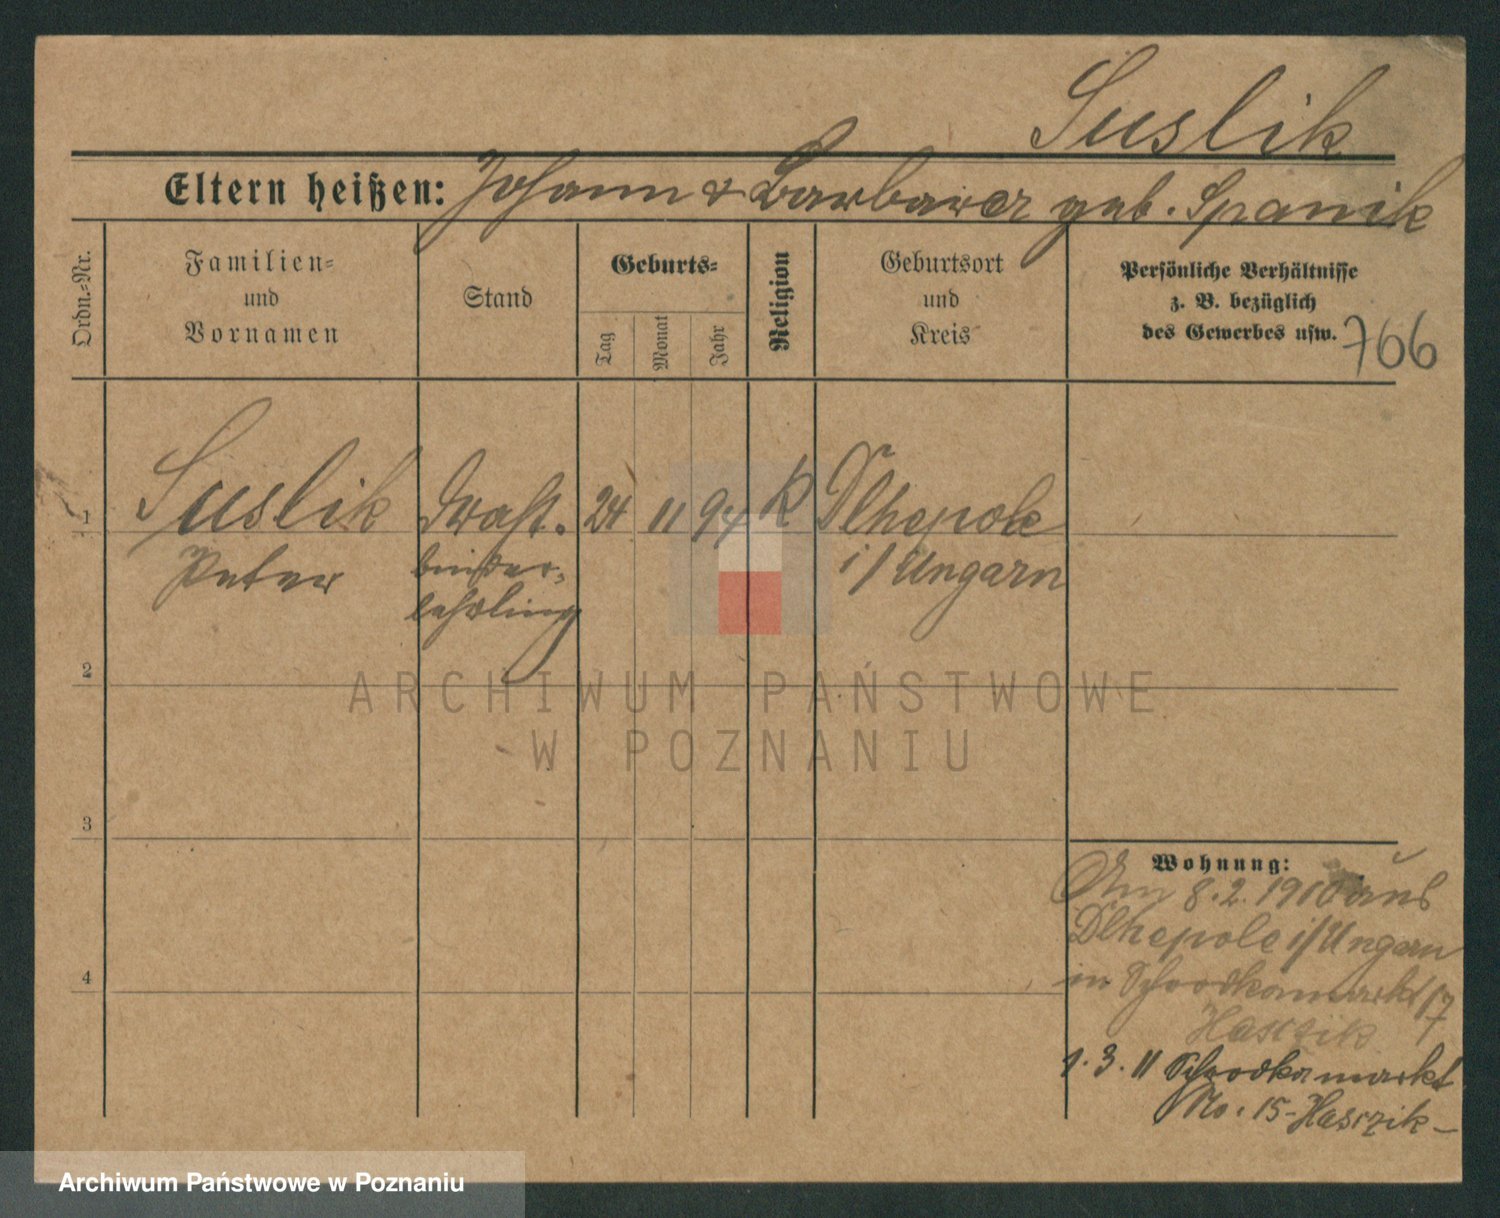 Suslik
Eltern heißen: Johann & Barbara geb. Spanik
Ordn.-Nr.
Familien-
und
Vornamen
Stand
Geburts-
Tag
Monat
Jahr
Religion
Geburtsort
und
Kreis
Persönliche Verhältnisse
z. B. bezüglich
des Gewerbes usw.
766
1
Suslik Draht- 24 11 94 K Dlhepole
Peter binder- i/Ungarn
lehrling
2
ARCHIWUM PAŃSTWOWE
W POZNANIU
3
Wohnung:
Am 8.2.1910 aus
Dlhepole i/Ungarn
4
in Schrodkamarkt 17
Hasczik
1.3.11 Schrodkamarkt
No: 15-Hasczik-
Archiwum Państwowe w Poznaniu